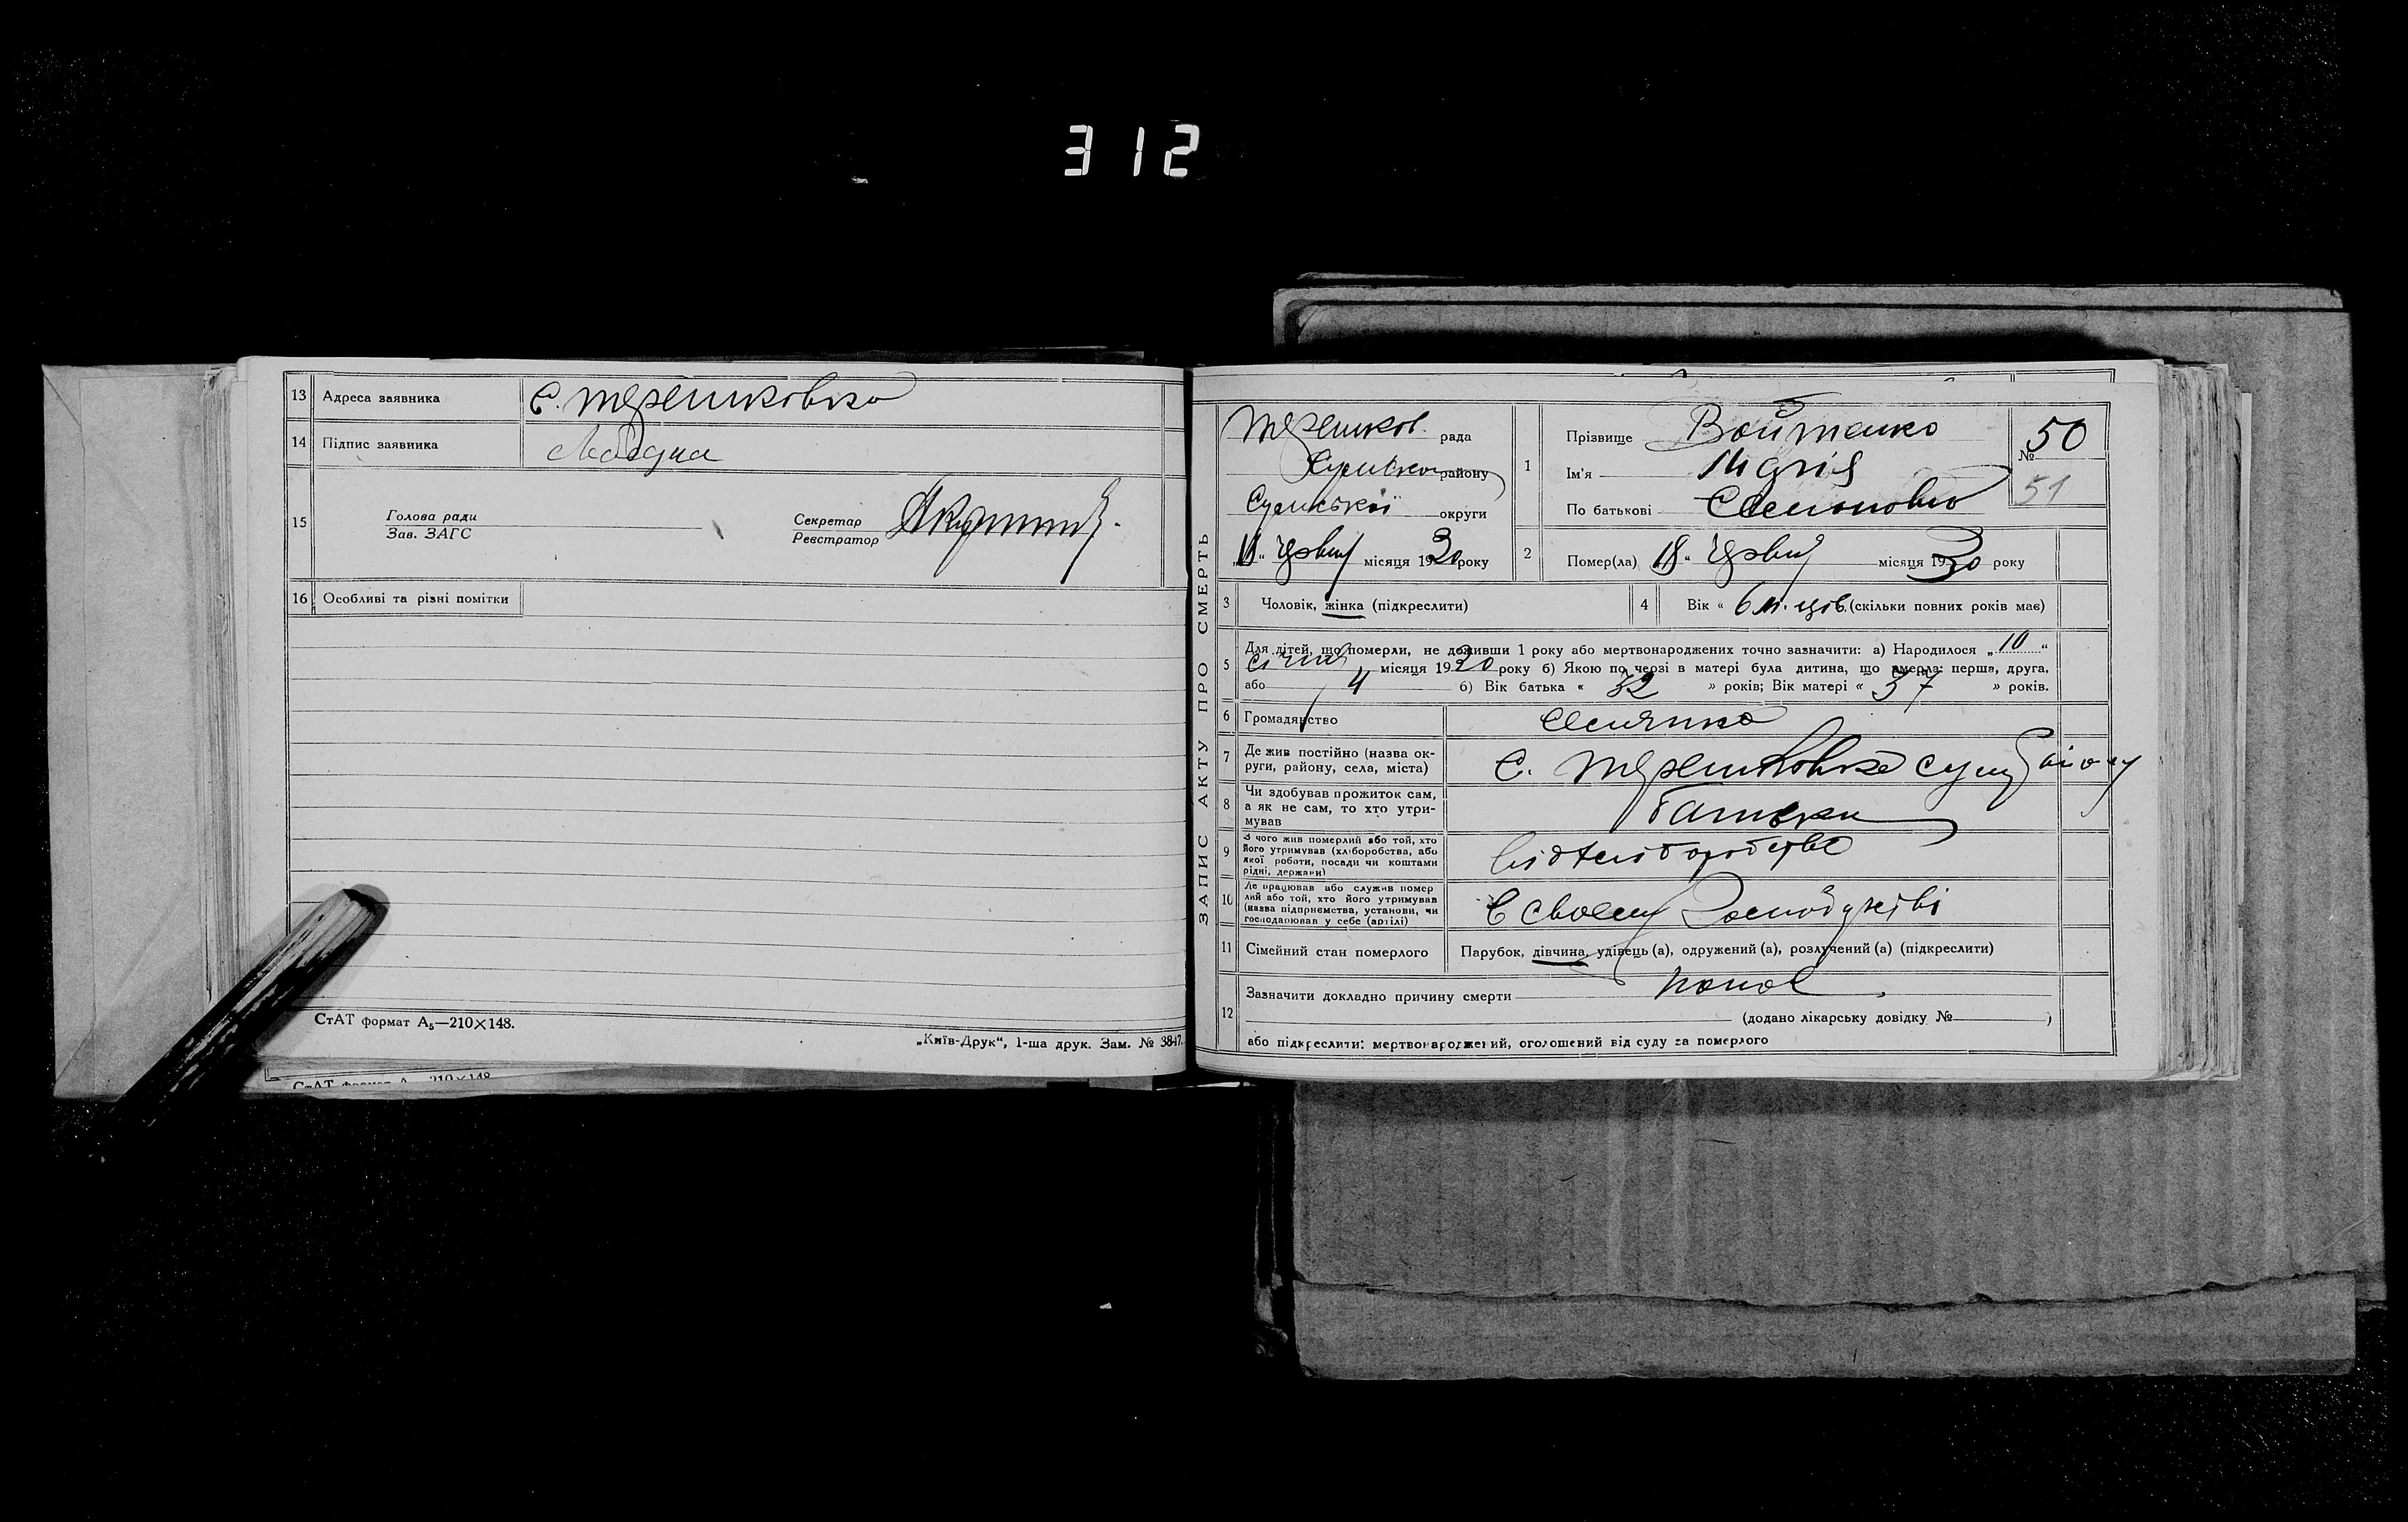 312
13 Адреса заявника С. Терешковка
14 Підпис заявника
15 Голова ради
Зав. ЗАГС
Секретар
Реєстратор
16 Особливі та різні помітки
СтАТ формат А₅—210×148.
„Київ-Друк“, 1-ша друк. Зам. № 3847.
СтАТ формат А 210×148
ЗАПИС АКТУ ПРО СМЕРТЬ
Терешков. рада
Сумського району
Сумської округи
„18“ Червня місяця 1930 року
1 Прізвище Войтенко
Ім'я Марія
По батькові Семеновна
№ 50
51
2 Помер(ла) 18 “ Червня місяця 1930 року
3 Чоловік, жінка (підкреслити)
4 Вік « 6 м. (скільки повних років має)
5 Для дітей, що померли, не доживши 1 року або мертвонароджених точно зазначити: а) Народилося „10“
Січня місяця 1930 року б) Якою по черзі в матері була дитина, що вмерла: перша, друга,
або 4 б) Вік батька « 32 » років; Вік матері « 37 » років.
6 Громадянство
7 Де жив постійно (назва округи, району, села, міста) С. Терешковка Сум району
8 Чи здобував прожиток сам, а як не сам, то хто утримував Батьки
9 З чого жив померлий або той, хто його утримував (хліборобства, або якої роботи, посади чи коштами рідні, держави)
10 Де працював або служив померлий або той, хто його утримував (назва підприємства, установи, чи господарював у себе (артілі) В своему Господарстві
11 Сімейний стан померлого Парубок, дівчина, удівець (а), одружений (а), розлучений (а) (підкреслити)
12 Зазначити докладно причину смерти
(додано лікарську довідку № )
або підкреслити: мертвонароджений, оголошений від суду за померлого